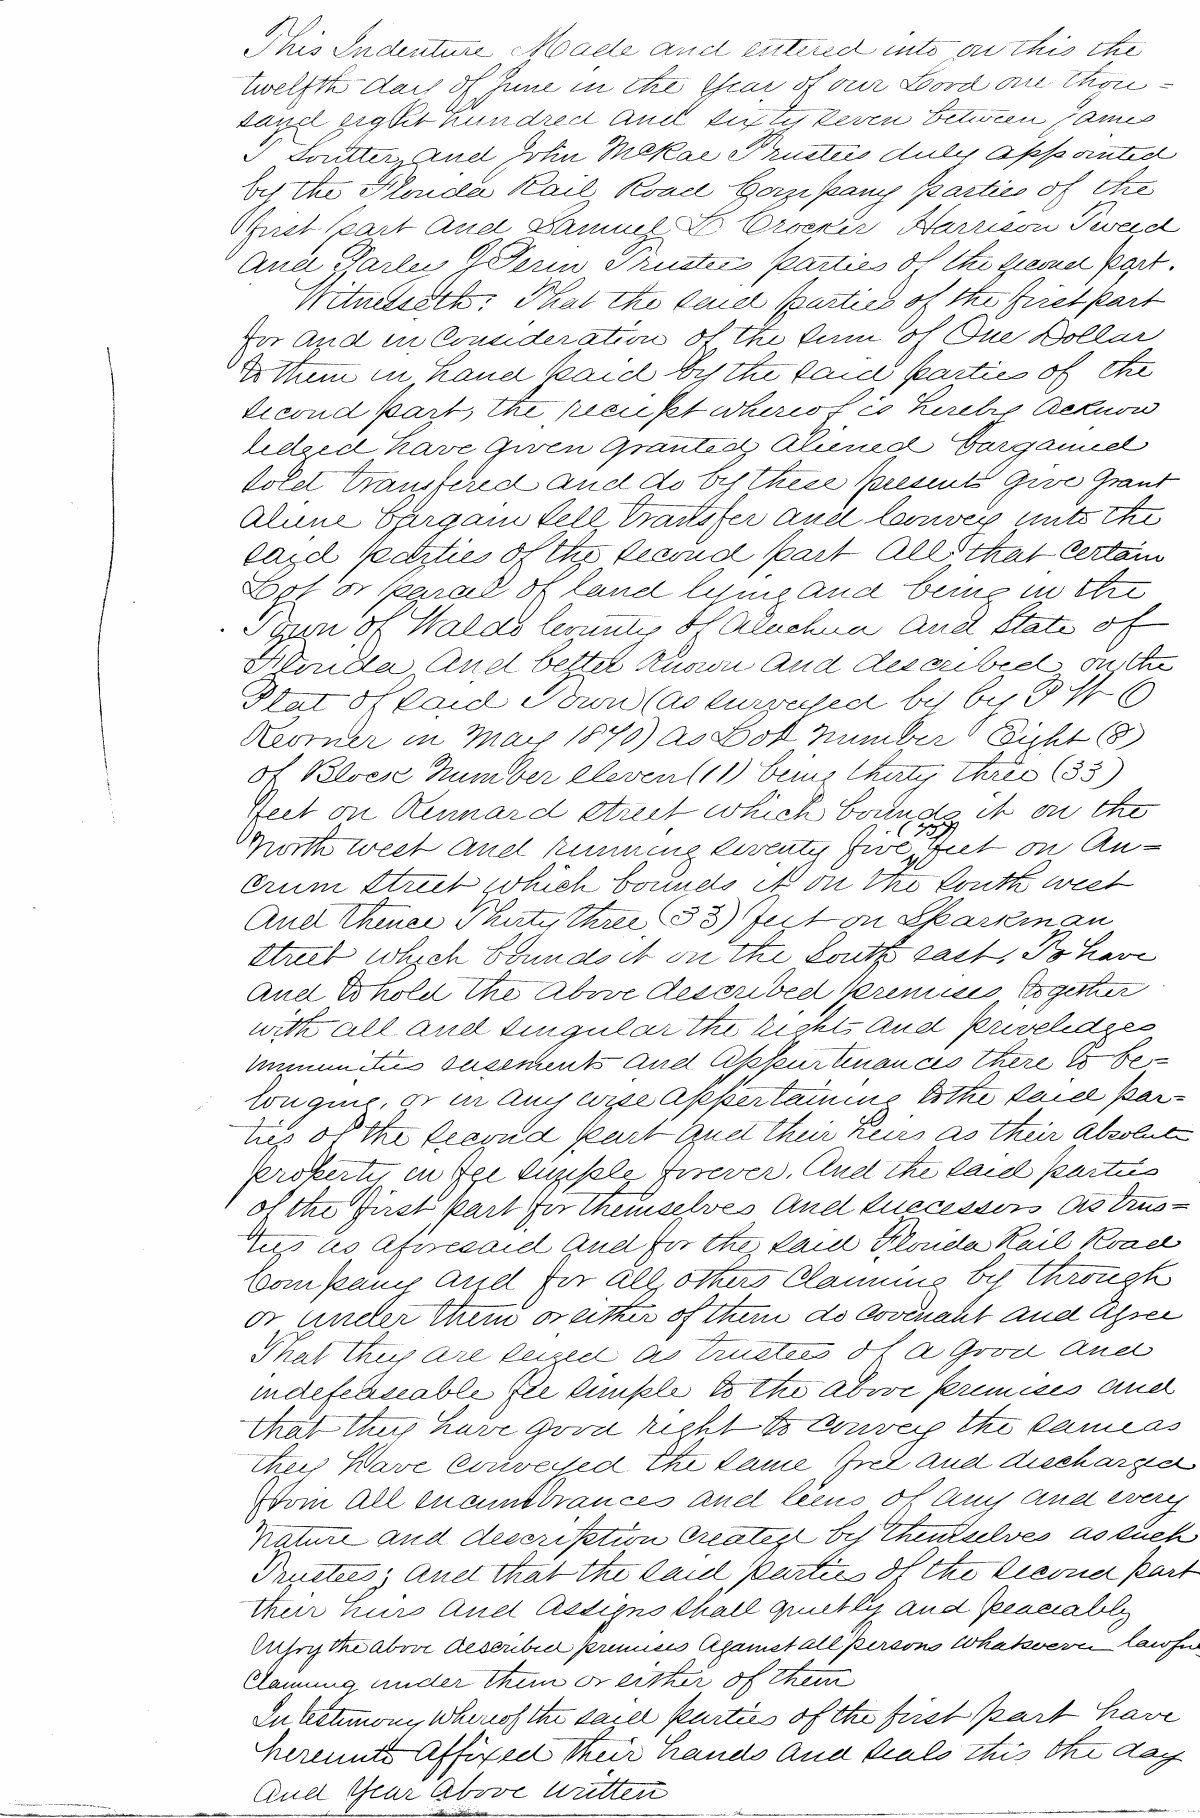 This Indenture Made and entered into on this the
twelfth day of June in the Year of our Lord one thou=
sand eight hundred and sixty seven between James
T Soutter and John McRae Trustees duly appointed
by the Florida Rail Road Company parties of the
first part and Samuel L Crocker Harrison Tweed
and Parley I Perin Trustees parties of the second part.
Witnesseth: That the said parties of the first part
for and in Consideration of the sum of One Dollar
to them in hand paid by the said parties of the
second part, the reciept whereof is hereby acknow
ledged have given granted aliened bargained
sold transfered and do by these presents give grant
aliene bargain sell transfer and Convey unto the
said parties of the second part all that certain
Lot or parcel of land lying and being in the
Town of Waldo County of Alachua and State of
Florida and better known and described on the
Plat of said Town (as surveyed by by P W O
Keorner in May 1870) as Lot Number Eight (8)
of Block Number eleven (11) being thirty three (33)
feet on Kennard street which bounds it on the
North west and running seventy five (75) feet on An=
crum street which bounds it on the South west
and thence Thirty three (33) feet on Sparkman
street which bounds it on the South east, To have
and to hold the above described premises together
with all and singular the rights and priveledges
immunities easements and appurtenances there to be=
longing, or in any wise appertaining to the said par=
ties of the second part and their heirs as their absolute
property in fee simple forever. And the said parties
of the first part for themselves and successors as trus=
tees as aforesaid and for the said Florida Rail Road
Company and for all others Claiming by through
or under them or either of them do covenant and agree
That they are seized as trustees of a good and
indefeaseable fee simple to the above premises and
that they have good right to convey the same as
they have conveyed the same free and discharged
from all encumbrances and liens of any and every
nature and description created by themselves as such
Trustees; and that the said parties of the second part
their heirs and assigns shall quietly and peaceably
enjoy the above described premises against all persons whatsoever lawfu
Claiming under them or either of them
In testimony whereof the said parties of the first part have
hereunto affixed their hands and seals this the day
and Year above written